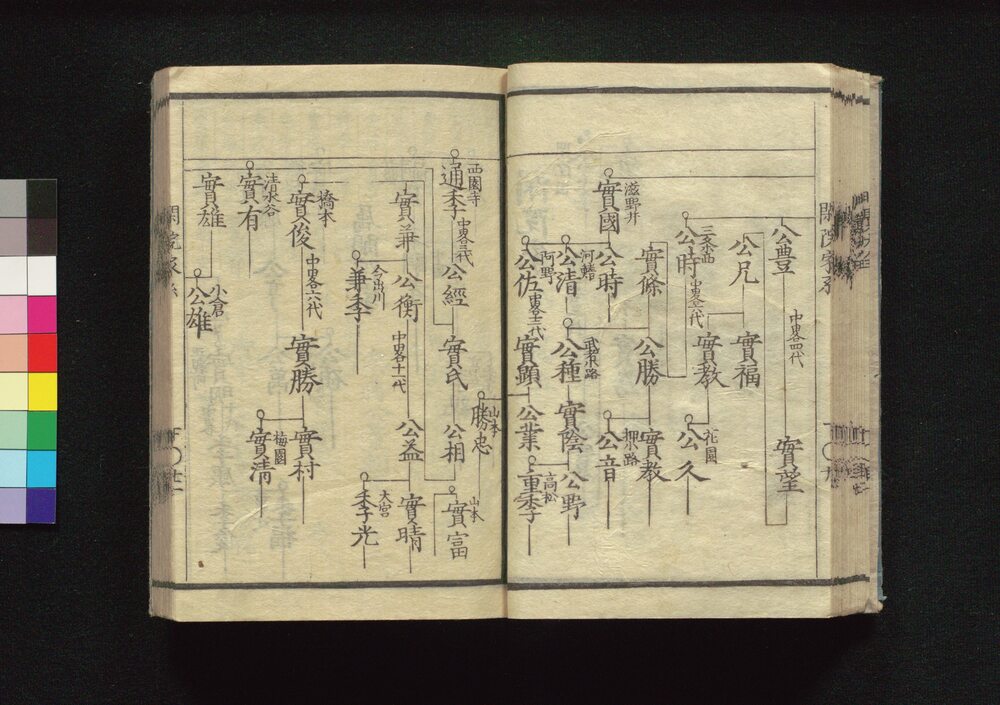 公豊
中畧四代
實堅
公兄
實福
三条西
公時
中畧六代
實教
花園
公久
滋野井
實國
實條
公勝
實教
公時
押小路
公音
河鰭
公清
武者小路
公種
實陰
公野
阿野
公佐
中畧十二代
實顕
公業
高松
重季
山本
勝忠
西園寺
通季
中畧三代
公經
實氏
公相
山本
實富
實兼
公衡
中畧十一代
公益
實晴
今出川
兼季
大宮
季光
橋本
實俊
中畧六代
實勝
實村
梅園
實清
清水谷
實有
實雄
小倉
公雄